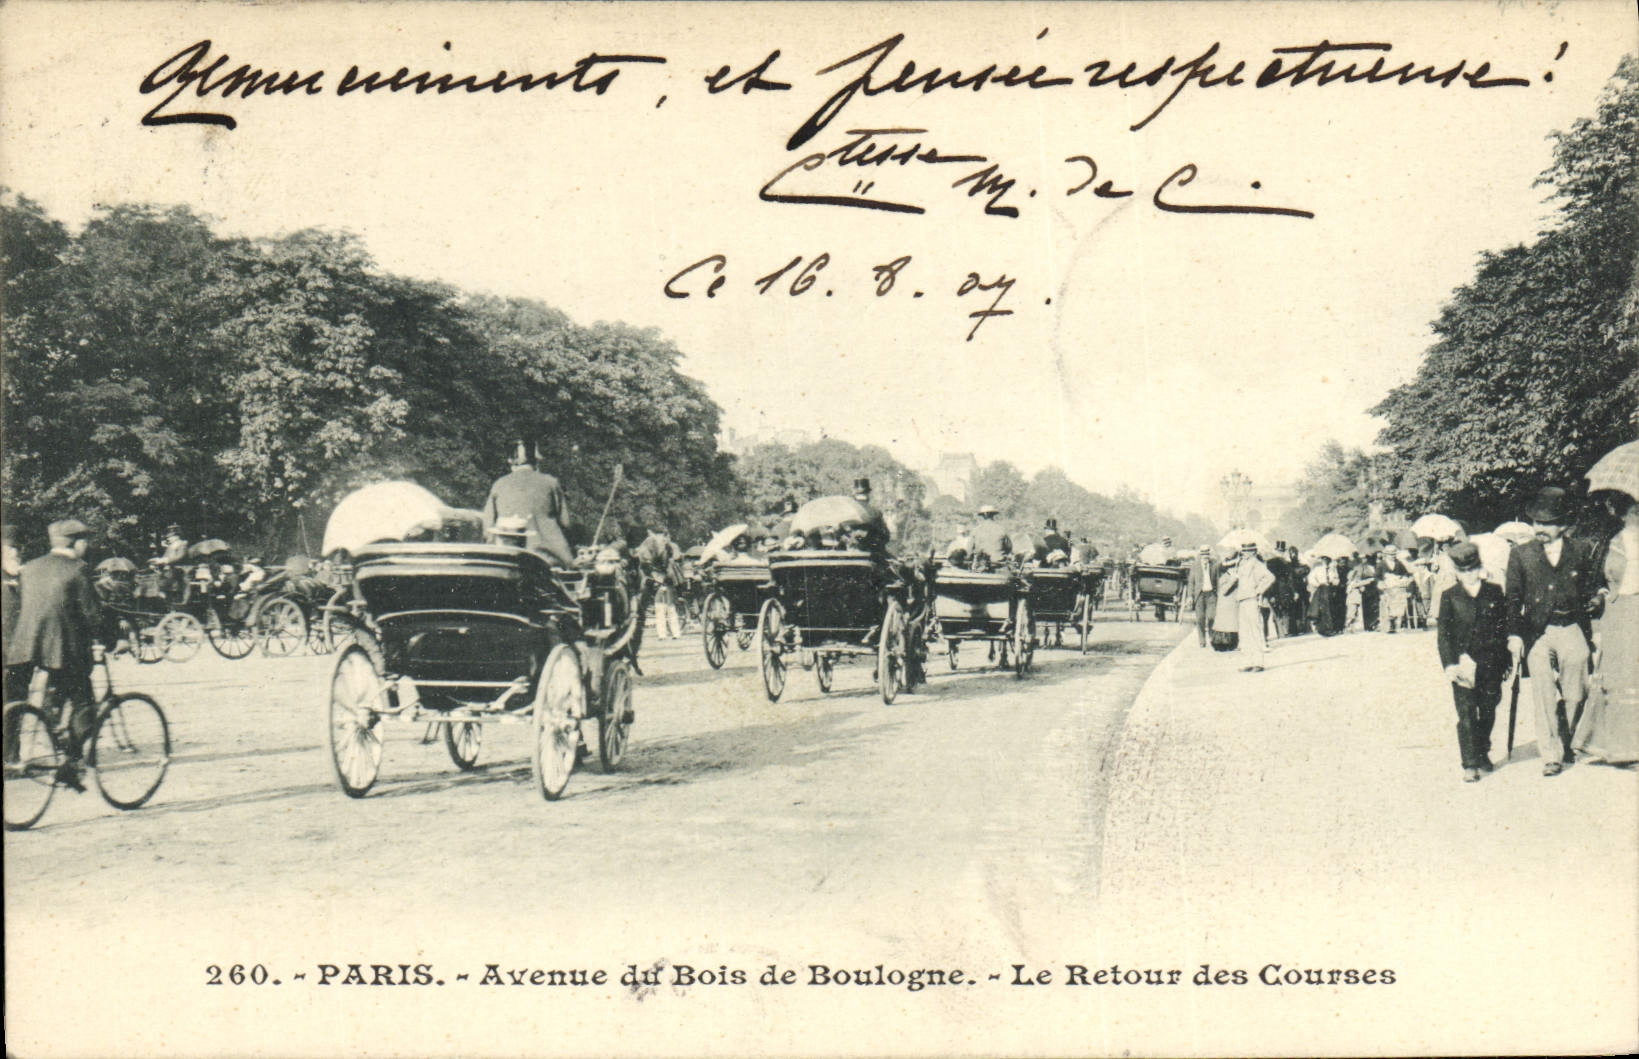 Remerciements, et pensée respectueuse!
Ctesse M. de C.
Ce 16. 8. 07.
260. - PARIS. - Avenue du Bois de Boulogne. - Le Retour des Courses